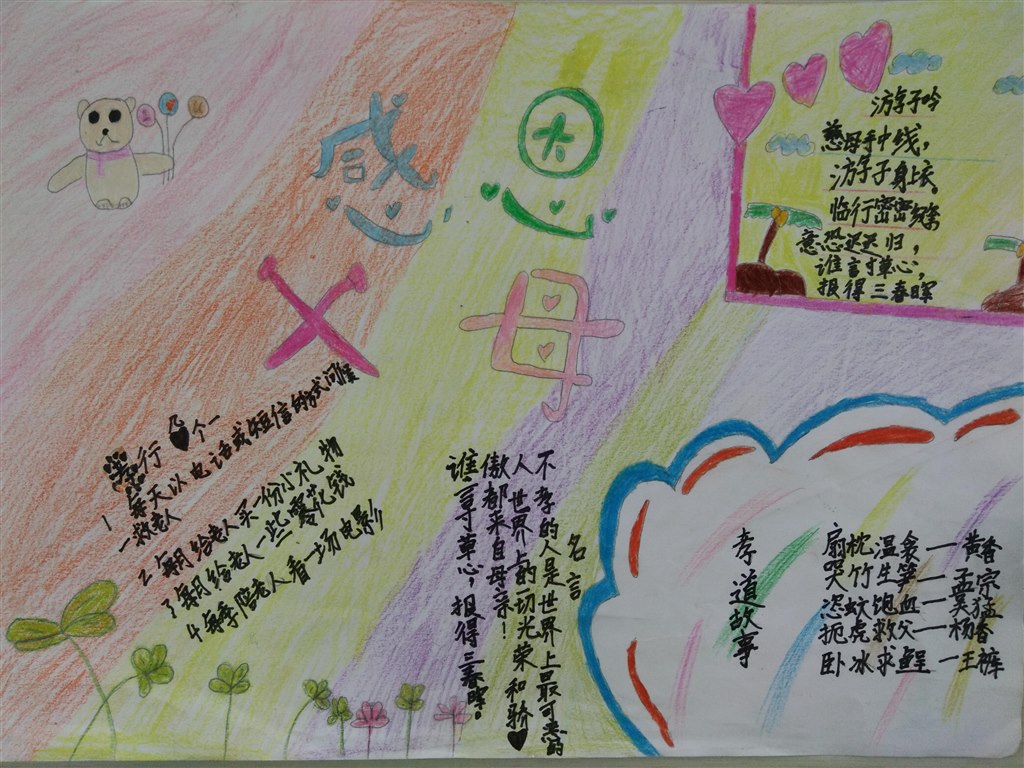 感恩
父母
游子吟
慈母手中线，
游子身上衣。
临行密密缝
意恐迟迟归，
谁言寸草心，
报得三春晖
行 个一
1 每天以电话或短信的形式问候
一次老人
2 每月给老人买一份小礼物
3 每月给老人一些零花钱
4 每季陪老人看一场电影
名言
不孝的人是世界上最可恶的
人世界上的一切光荣和骄
傲都来自母亲！
谁言寸草心，报得三春晖。
孝道故事
扇枕温衾—黄香
哭竹生笋—孟宗
恣蚊饱血—吴猛
扼虎救父—杨香
卧冰求鲤—王